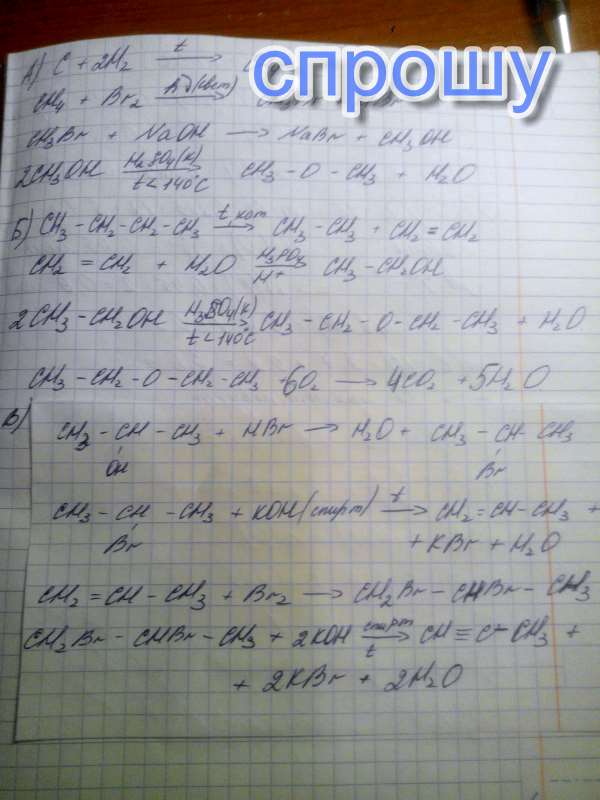 спрошу
А) C + 2H₂ t →
CH₄ + Br₂ hд(свет) →
CH₃Br + NaOH → NaBr + CH₃OH
2CH₃OH H₂SO₄(к) t<140°C → CH₃ - O - CH₃ + H₂O
Б) CH₃ - CH₂ - CH₂ - CH₃ t, кат → CH₃ - CH₃ + CH₂ = CH₂
CH₂ = CH₂ + H₂O H₃PO₄ H⁺ → CH₃ - CH₂OH
2CH₃ - CH₂OH SO₄(к) t<140°C → CH₃ - CH₂ - O - CH₂ - CH₃ + H₂O
CH₃ - CH₂ - O - CH₂ - CH₃ 6O₂ → 4CO₂ + 5H₂O
В)
CH₃ - CH - CH₃ + HBr → H₂O + CH₃ - CH - CH₃
OH Br
CH₃ - CH - CH₃ + KOH(спирт) t → CH₂ = CH - CH₃ +
Br + KBr + H₂O
CH₂ = CH - CH₃ + Br₂ → CH₂Br - CHBr - CH₃
CH₂Br - CHBr - CH₃ + 2KOH спирт t → CH ≡ C - CH₃ +
+ 2KBr + 2H₂O